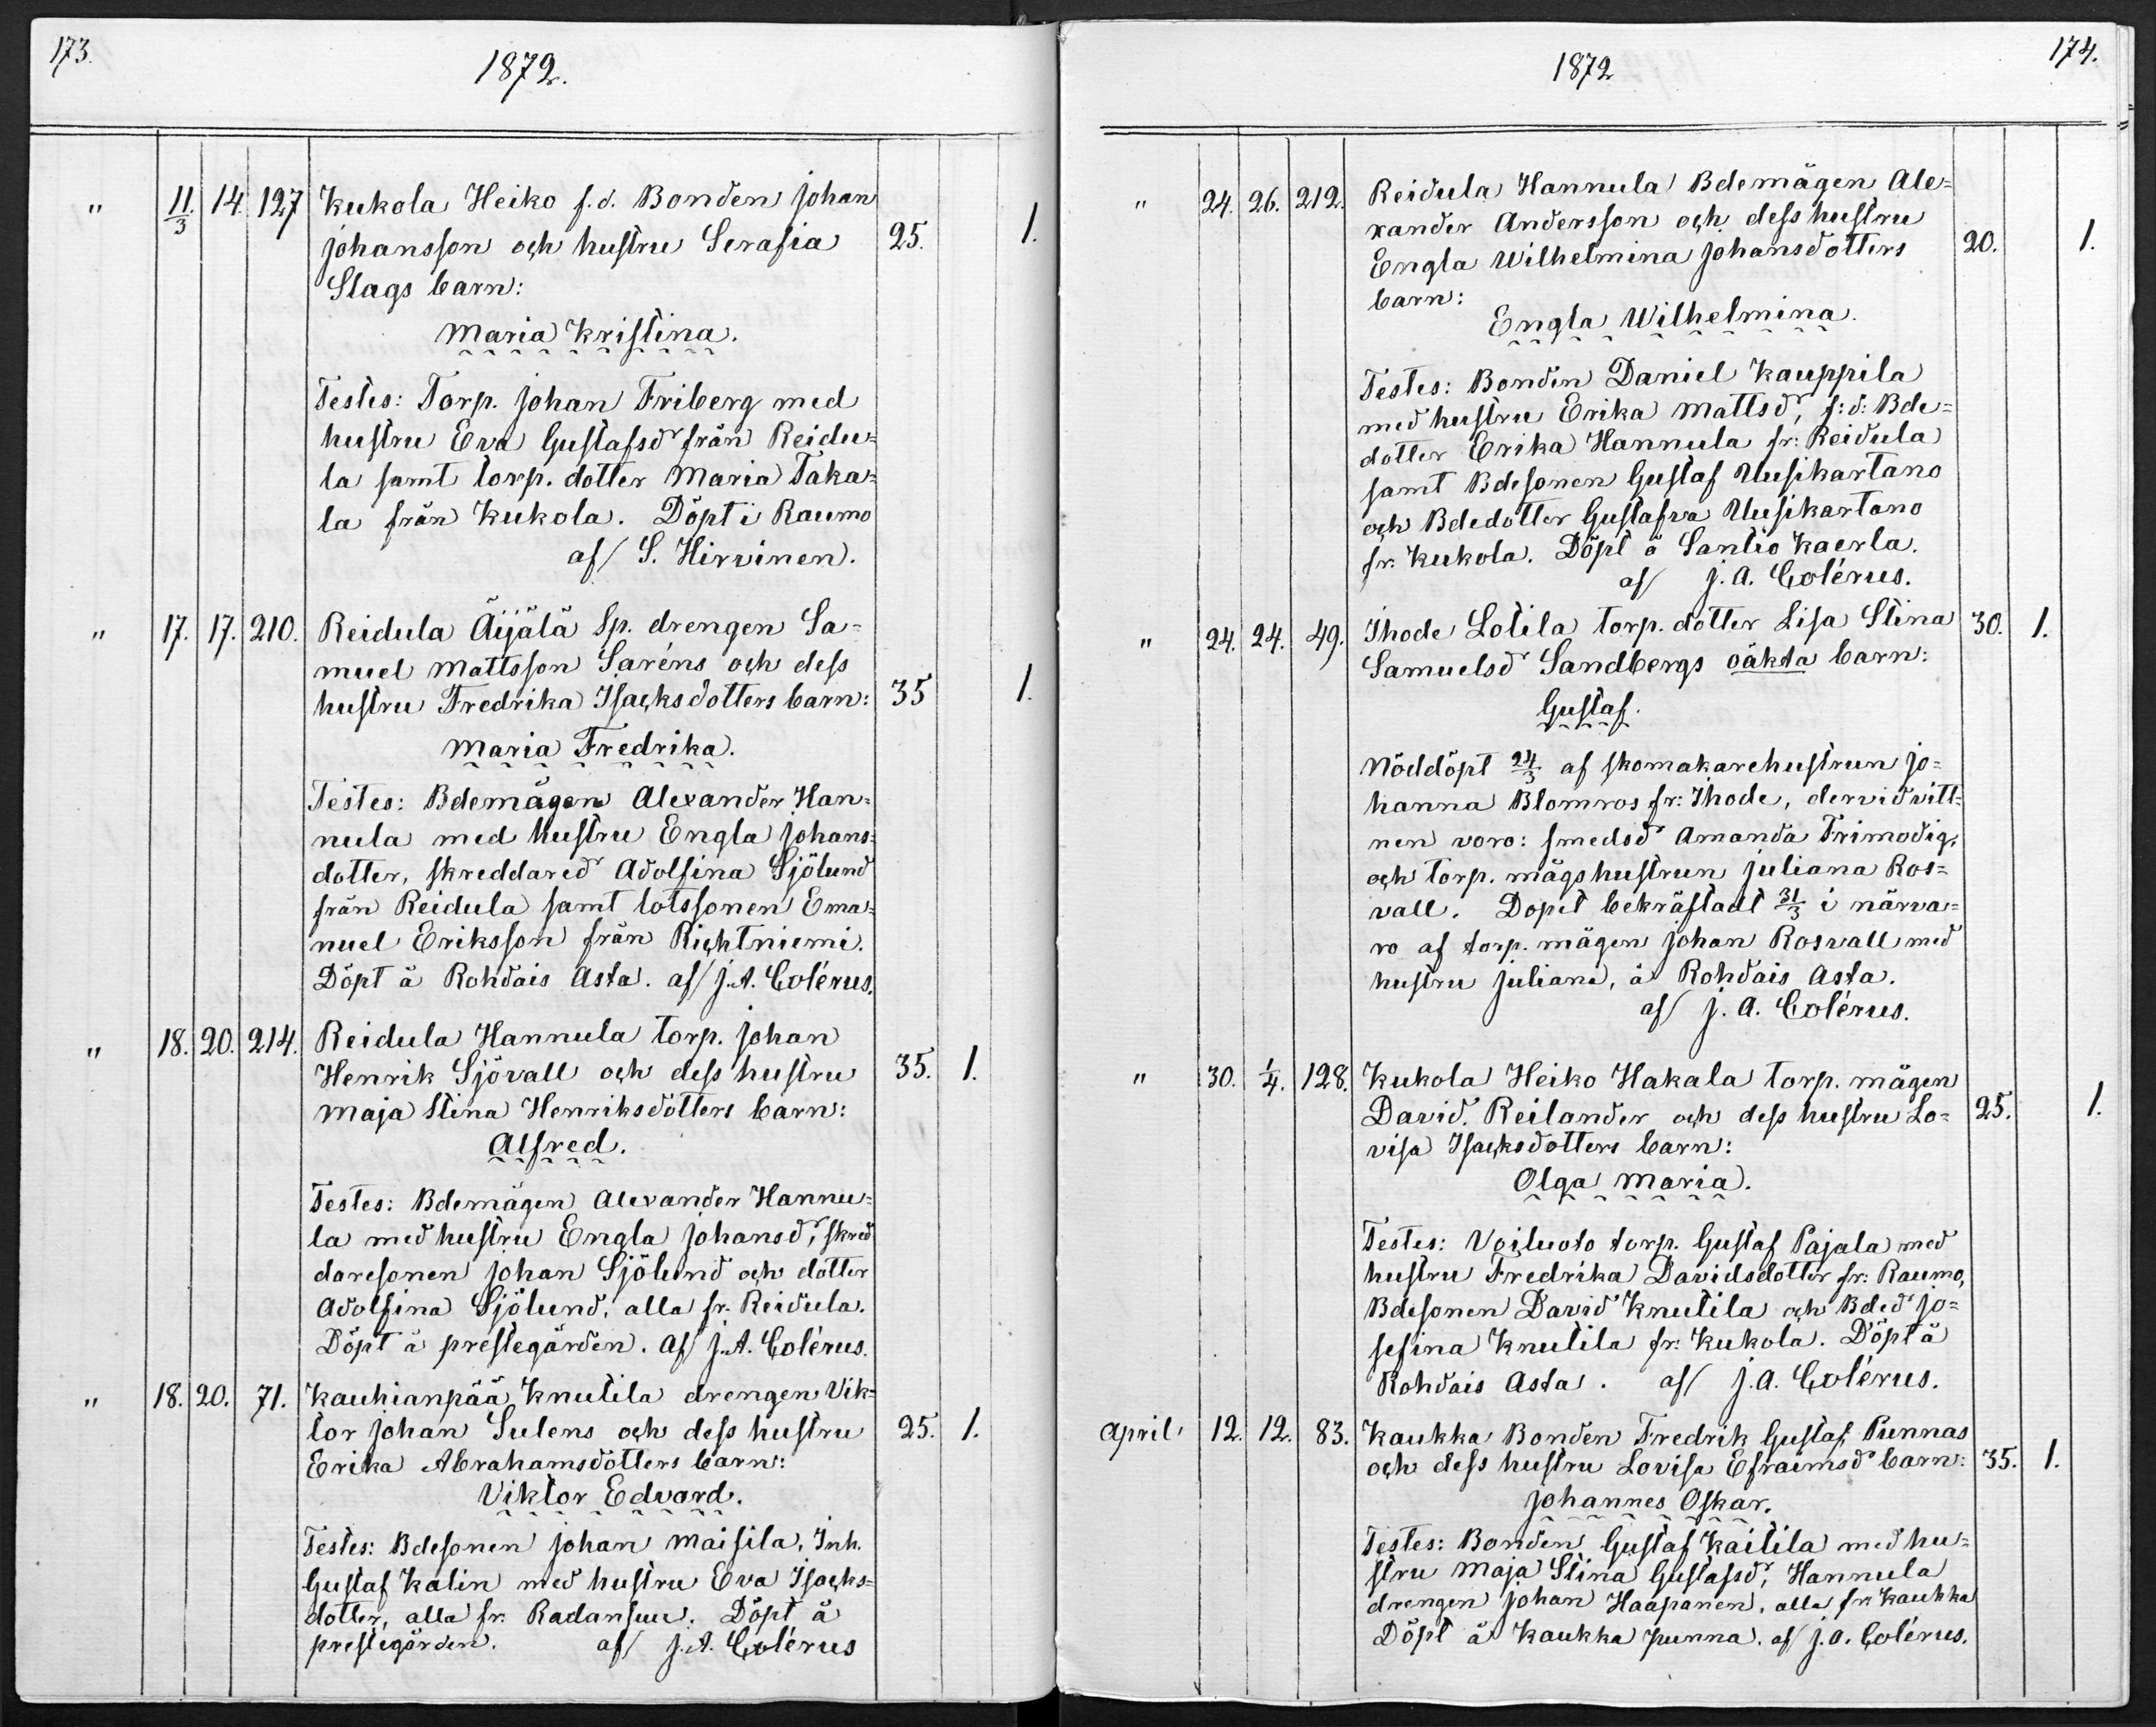 173.
1872.
" 11/3 14 127 Kukola Heiko f.d. Bonden Johan
Johansson och hustru Serafia 25. 1.
Slags barn:
Maria Kristina.
Testes: Torp. Johan Friberg med
hustru Eva Gustafsdr från Reidu=
la samt torp. dotter Maria Taka=
la från Kukola. Döpt i Raumo
af/ S. Hirvinen.
" 17. 17. 210. Reidula Äijälä Sp. drengen Sa=
muel Mattsson Saréns och dess
hustru Fredrika Isacksdotters barn: 35 1.
Maria Fredrika.
Testes: Bdemågen Alexander Han=
nula med hustru Engla Johans=
dotter, skreddared Adolfina Sjölund
från Reidula samt lotssonen Ema=
nuel Eriksson från Richtniemi.
Döpt å Rohdais Asta. af/ J.A. Colérus.
" 18. 20. 214. Reidula Hannula torp. Johan
Henrik Sjövall och dess hustru 35. 1.
Maja Stina Henriksdotters barn:
Alfred.
Testes: Bdemågen Alexander Hannu=
la med hustru Engla Johansdr, skred
daresonen Johan Sjölund och dotter
Adolfina Sjölund, alla fr. Reidula.
Döpt å prestegården. af/ J.A. Colérus.
" 18. 20. 71. Kauhianpää Knutila drengen Vik=
tor Johan Sulens och dess hustru 25. 1.
Erika Abrahamsdotters barn:
Viktor Edvard.
Testes: Bdesonen Johan Maisila, Inh.
Gustaf Kalin med hustru Eva Isacks=
dotter, alla fr. Radansuu. Döpt å
prestegården. af/ J.A. Colérus
174.
1872
" 24. 26. 212. Reidula Hannula Bdemågen Ale=
xander Andersson och dess hustru
Engla Wilhelmina Johansdotters 20. 1.
barn:
Engla Wilhelmina.
Testes: Bonden Daniel Kauppila
med hustru Erika Mattsdr, f:d: Bde=
dotter Erika Hannula fr: Reidula
samt Bdesonen Gustaf Uusikartano
och Bdedotter Gustafva Uusikartano
fr. Kukola. Döpt å Santio Kaerla.
af/ J.A. Colérus.
" 24. 24. 49. Ihode Lotila torp. dotter Lisa Stina 30. 1.
Samuelsdr Sandbergs oäkta barn:
Gustaf.
Nöddöpt 24/3 af skomakarehustrun Jo=
hanna Blomros fr: Ihode, dervid vitt=
nen voro: smedsdr Amanda Frimodig,
och torp. mågshustrun Juliana Ros=
vall. Dopet bekräftadt 31/3 i närva=
ro af torp. mågen Johan Rosvall med
hustru Juliana, å Rohdais Asta.
af/ J.A. Colérus.
" 30. 1/4. 128. Kukola Heiko Hakala torp. mågen
David Reilander och dess hustru Lo= 25. 1.
visa Isacksdotters barn:
Olga Maria.
Testes: Voiluoto torp. Gustaf Pajala med
hustru Fredrika Davidsdotter fr: Raumo,
Bdesonen David Knutila och Bdedr Jo=
sefina Knutila fr: Kukola. Döpt å
Rohdais Asta. af/ J.A. Colérus.
April 12. 12. 83. Kaukka Bonden Fredrik Gustaf Punnas
och dess hustru Lovisa Efraimsdr barn: 35. 1.
Johannes Oskar.
Testes: Bonden Gustaf Kaitila med hu=
stru Maja Stina Gustafsdr, Hannula
drengen Johan Haapanen, alla fr: Kaukka
Döpt å Kaukka Punna. af/ J.A. Colérus.